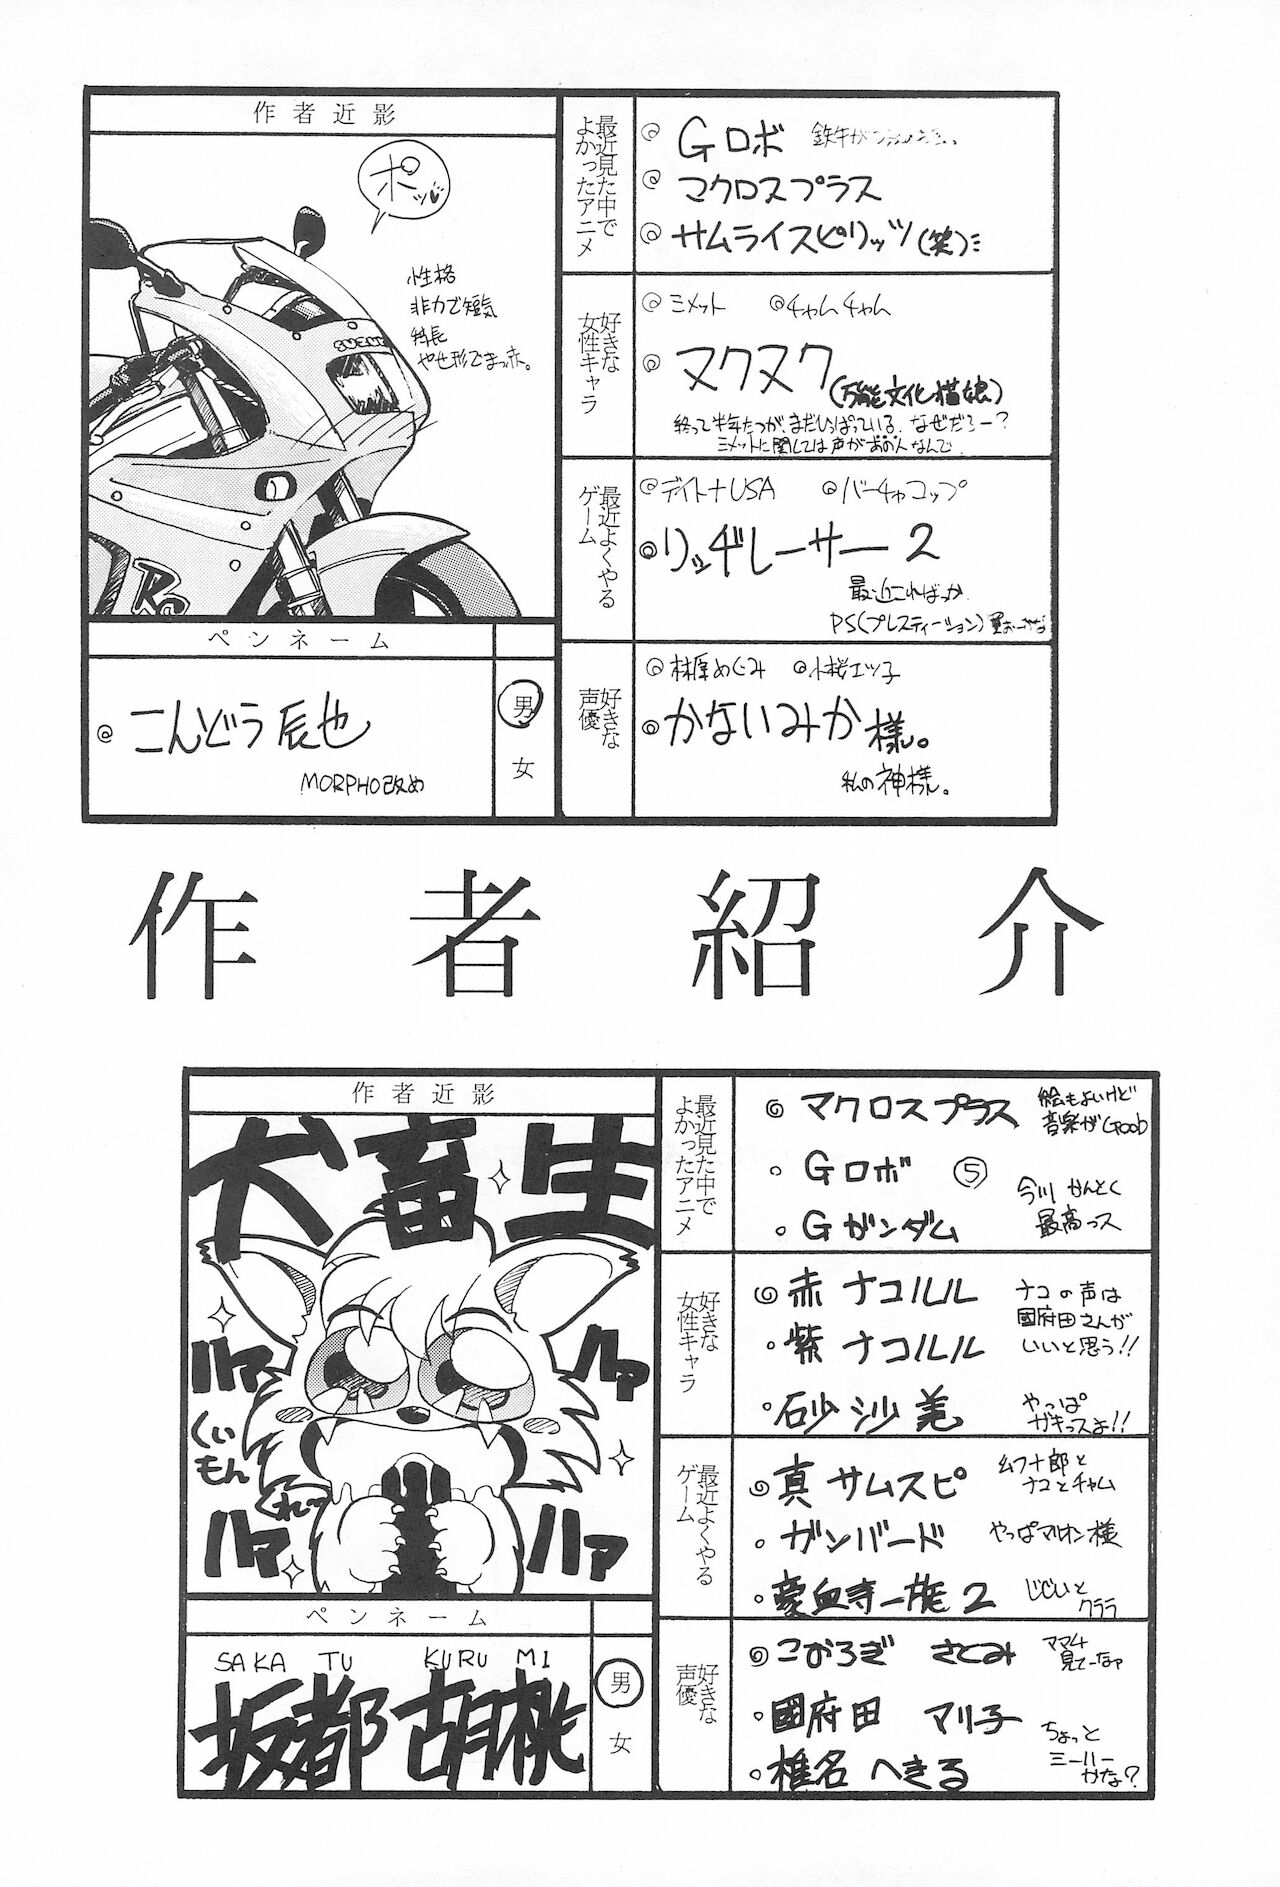 作者近影
ポッ
性格
非力で短気
特長
やせ形でまっ赤。
ペンネーム
こんどう辰也
MORPHO改め
男
女
最近見た中で
よかったアニメ
Gロボ
マクロスプラス
サムライスピリッツ(笑)
好きな
女性キャラ
ミメット チャムチャム
ヌクヌク(万能文化猫娘)
終って半年たつが、まだひっぱっている、なぜだろー?
ミメットに関しては声があの人なんで
最近よくやる
ゲーム
デイトナUSA バーチャコップ
リッヂレーサー2
最近こればっか
PS(プレステイーション)
好きな
声優
林原めぐみ 小桜エツ子
かないみか様。
私の神様。
作者紹介
作者近影
犬畜生
ハァ
ハァ
くいもん
くれッ
ハァ
ハァ
ペンネーム
SAKA TU KURU MI
坂都胡桃
男
女
最近見た中で
よかったアニメ
マクロスプラス 絵もよいけど
音楽がGOOD
Gロボ ⑤
Gガンダム
今川かんとく
最高っス
好きな
女性キャラ
赤ナコルル
紫ナコルル
ナコの声は
國府田さんが
いいと思う!!
砂沙美
やっぱ
ガキっスよ!!
最近よくやる
ゲーム
真サムスピ
ナコとチャム
ガンバード やっぱマリオン様
豪血寺一族2
じじいと
クララ
好きな
声優
こおろぎさとみ
ママ4
見てーなァ
國府田マリ子
椎名へきる
ちょっと
ミーハー
かな?